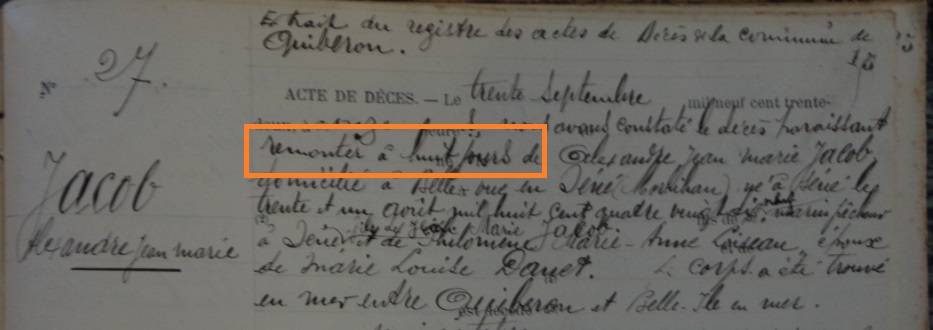 Extrait du registre des actes de Décès de la commune de
Quiberon.
15
N° 27.
ACTE DE DÉCES. — Le trente Septembre mil neuf cent trente-
deux, à onze heures, nous avons constaté le décès paraissant
remonter à huit jours de Alexandre Jean Marie Jacob
domicilié à Belle-vue en Séné (Morbihan) né à Séné le
trente et un août mil huit cent quatre vingt marin pêcheur
Jacob
fils de Marie Jacob
à Séné et de Philomène Marie-Anne Loiseau, époux
Alexandre Jean Marie
de Marie Louise Danet. Le corps a été trouvé
en mer entre Quiberon et Belle-Ile en mer.